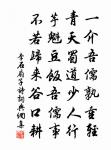 一介吾儒孰重轻
青天蜀道少人行
芋魁豆饭吾儒事
不若归来谷口耕
李石扇子诗词典网